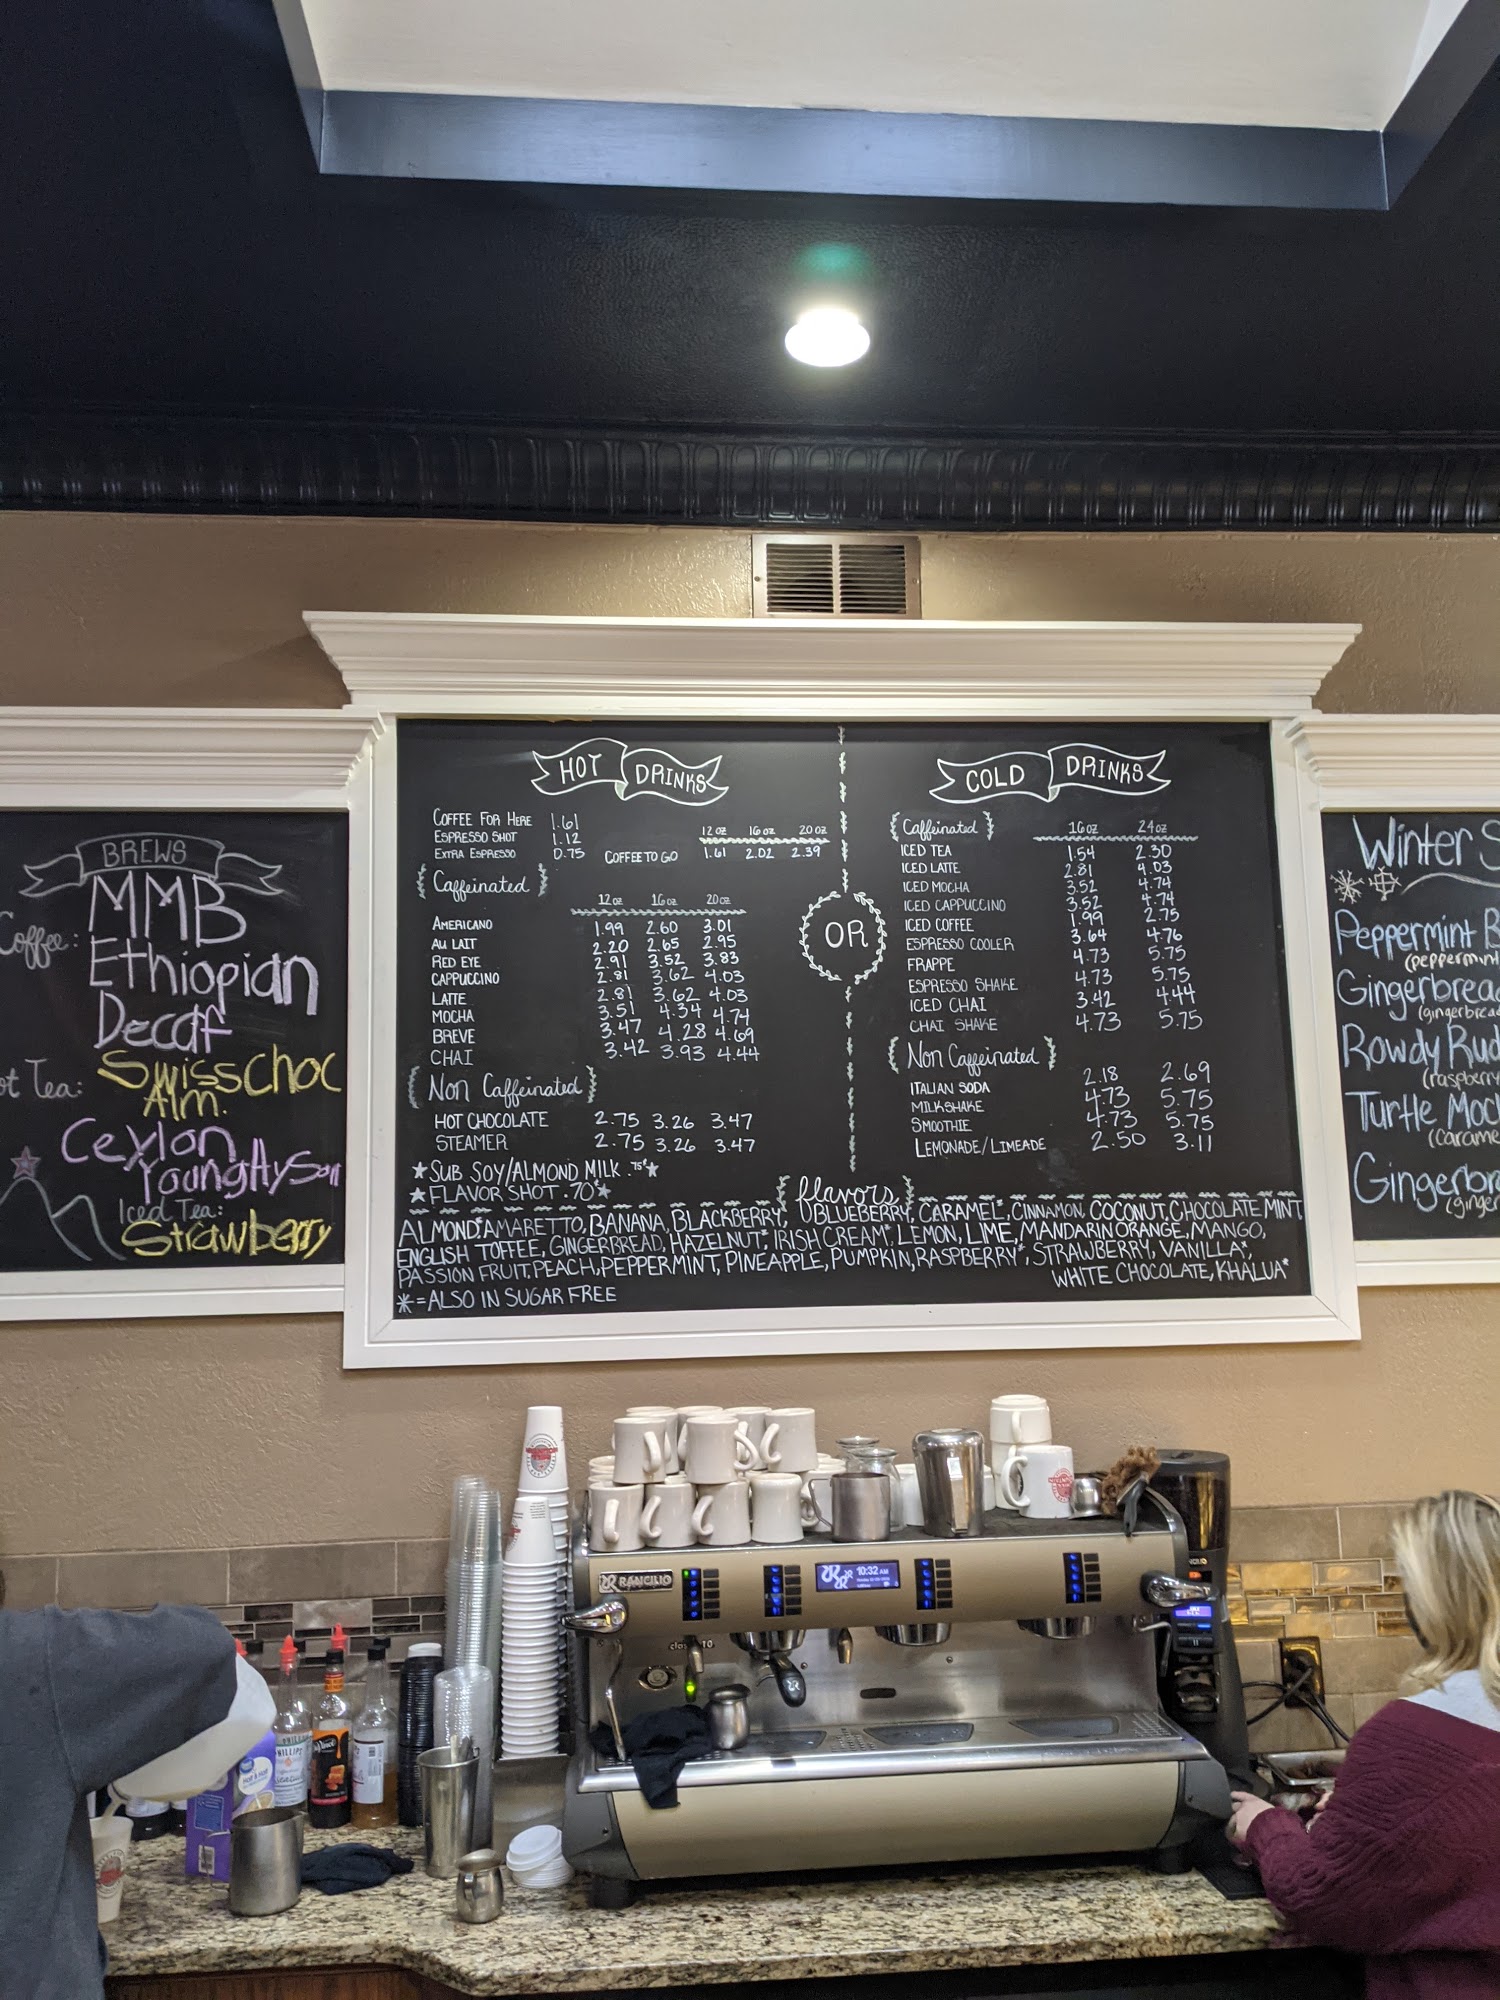 BREWS
Coffee: MMB
Ethiopian
Decaf
Tea: Swiss Choc
Alm.
Ceylon
Young Hyson
Iced Tea:
Strawberry
HOT DRINKS
COFFEE FOR HERE 1.61
ESPRESSO SHOT 1.12
EXTRA ESPRESSO 0.75
12 oz 16 oz 20 oz
COFFEE TO GO 1.61 2.02 2.39
Caffeinated
12 oz 16 oz 20 oz
AMERICANO 1.99 2.60 3.01
AU LAIT 2.20 2.65 2.95
RED EYE 2.91 3.52 3.83
CAPPUCCINO 2.81 3.62 4.03
LATTE 2.81 3.62 4.03
MOCHA 3.51 4.34 4.74
BREVE 3.47 4.28 4.69
CHAI 3.42 3.93 4.44
Non Caffeinated
HOT CHOCOLATE 2.75 3.26 3.47
STEAMER 2.75 3.26 3.47
★SUB SOY/ALMOND MILK .75¢★
★FLAVOR SHOT .70¢★
OR
COLD DRINKS
Caffeinated 16 oz 24 oz
ICED TEA 1.54 2.30
ICED LATTE 2.81 4.03
ICED MOCHA 3.52 4.74
ICED CAPPUCCINO 3.52 4.74
ICED COFFEE 1.99 2.75
ESPRESSO COOLER 3.64 4.76
FRAPPE 4.73 5.75
ESPRESSO SHAKE 4.73 5.75
ICED CHAI 3.42 4.44
CHAI SHAKE 4.73 5.75
Non Caffeinated
ITALIAN SODA 2.18 2.69
MILKSHAKE 4.73 5.75
SMOOTHIE 4.73 5.75
LEMONADE/LIMEADE 2.50 3.11
flavors
ALMOND,* AMARETTO, BANANA, BLACKBERRY, BLUEBERRY, CARAMEL*, CINNAMON, COCONUT, CHOCOLATE MINT,
ENGLISH TOFFEE, GINGERBREAD, HAZELNUT*, IRISH CREAM*, LEMON, LIME, MANDARIN ORANGE, MANGO,
PASSION FRUIT, PEACH, PEPPERMINT, PINEAPPLE, PUMPKIN, RASPBERRY*, STRAWBERRY, VANILLA*,
WHITE CHOCOLATE, KHALUA*
* = ALSO IN SUGAR FREE
Winter S
Peppermint B
(peppermint
Gingerbread
(gingerbread
Rowdy Rud
(raspberry
Turtle Moc
(carame
Gingerbre
(ginger
RANCILIO
10:32 AM